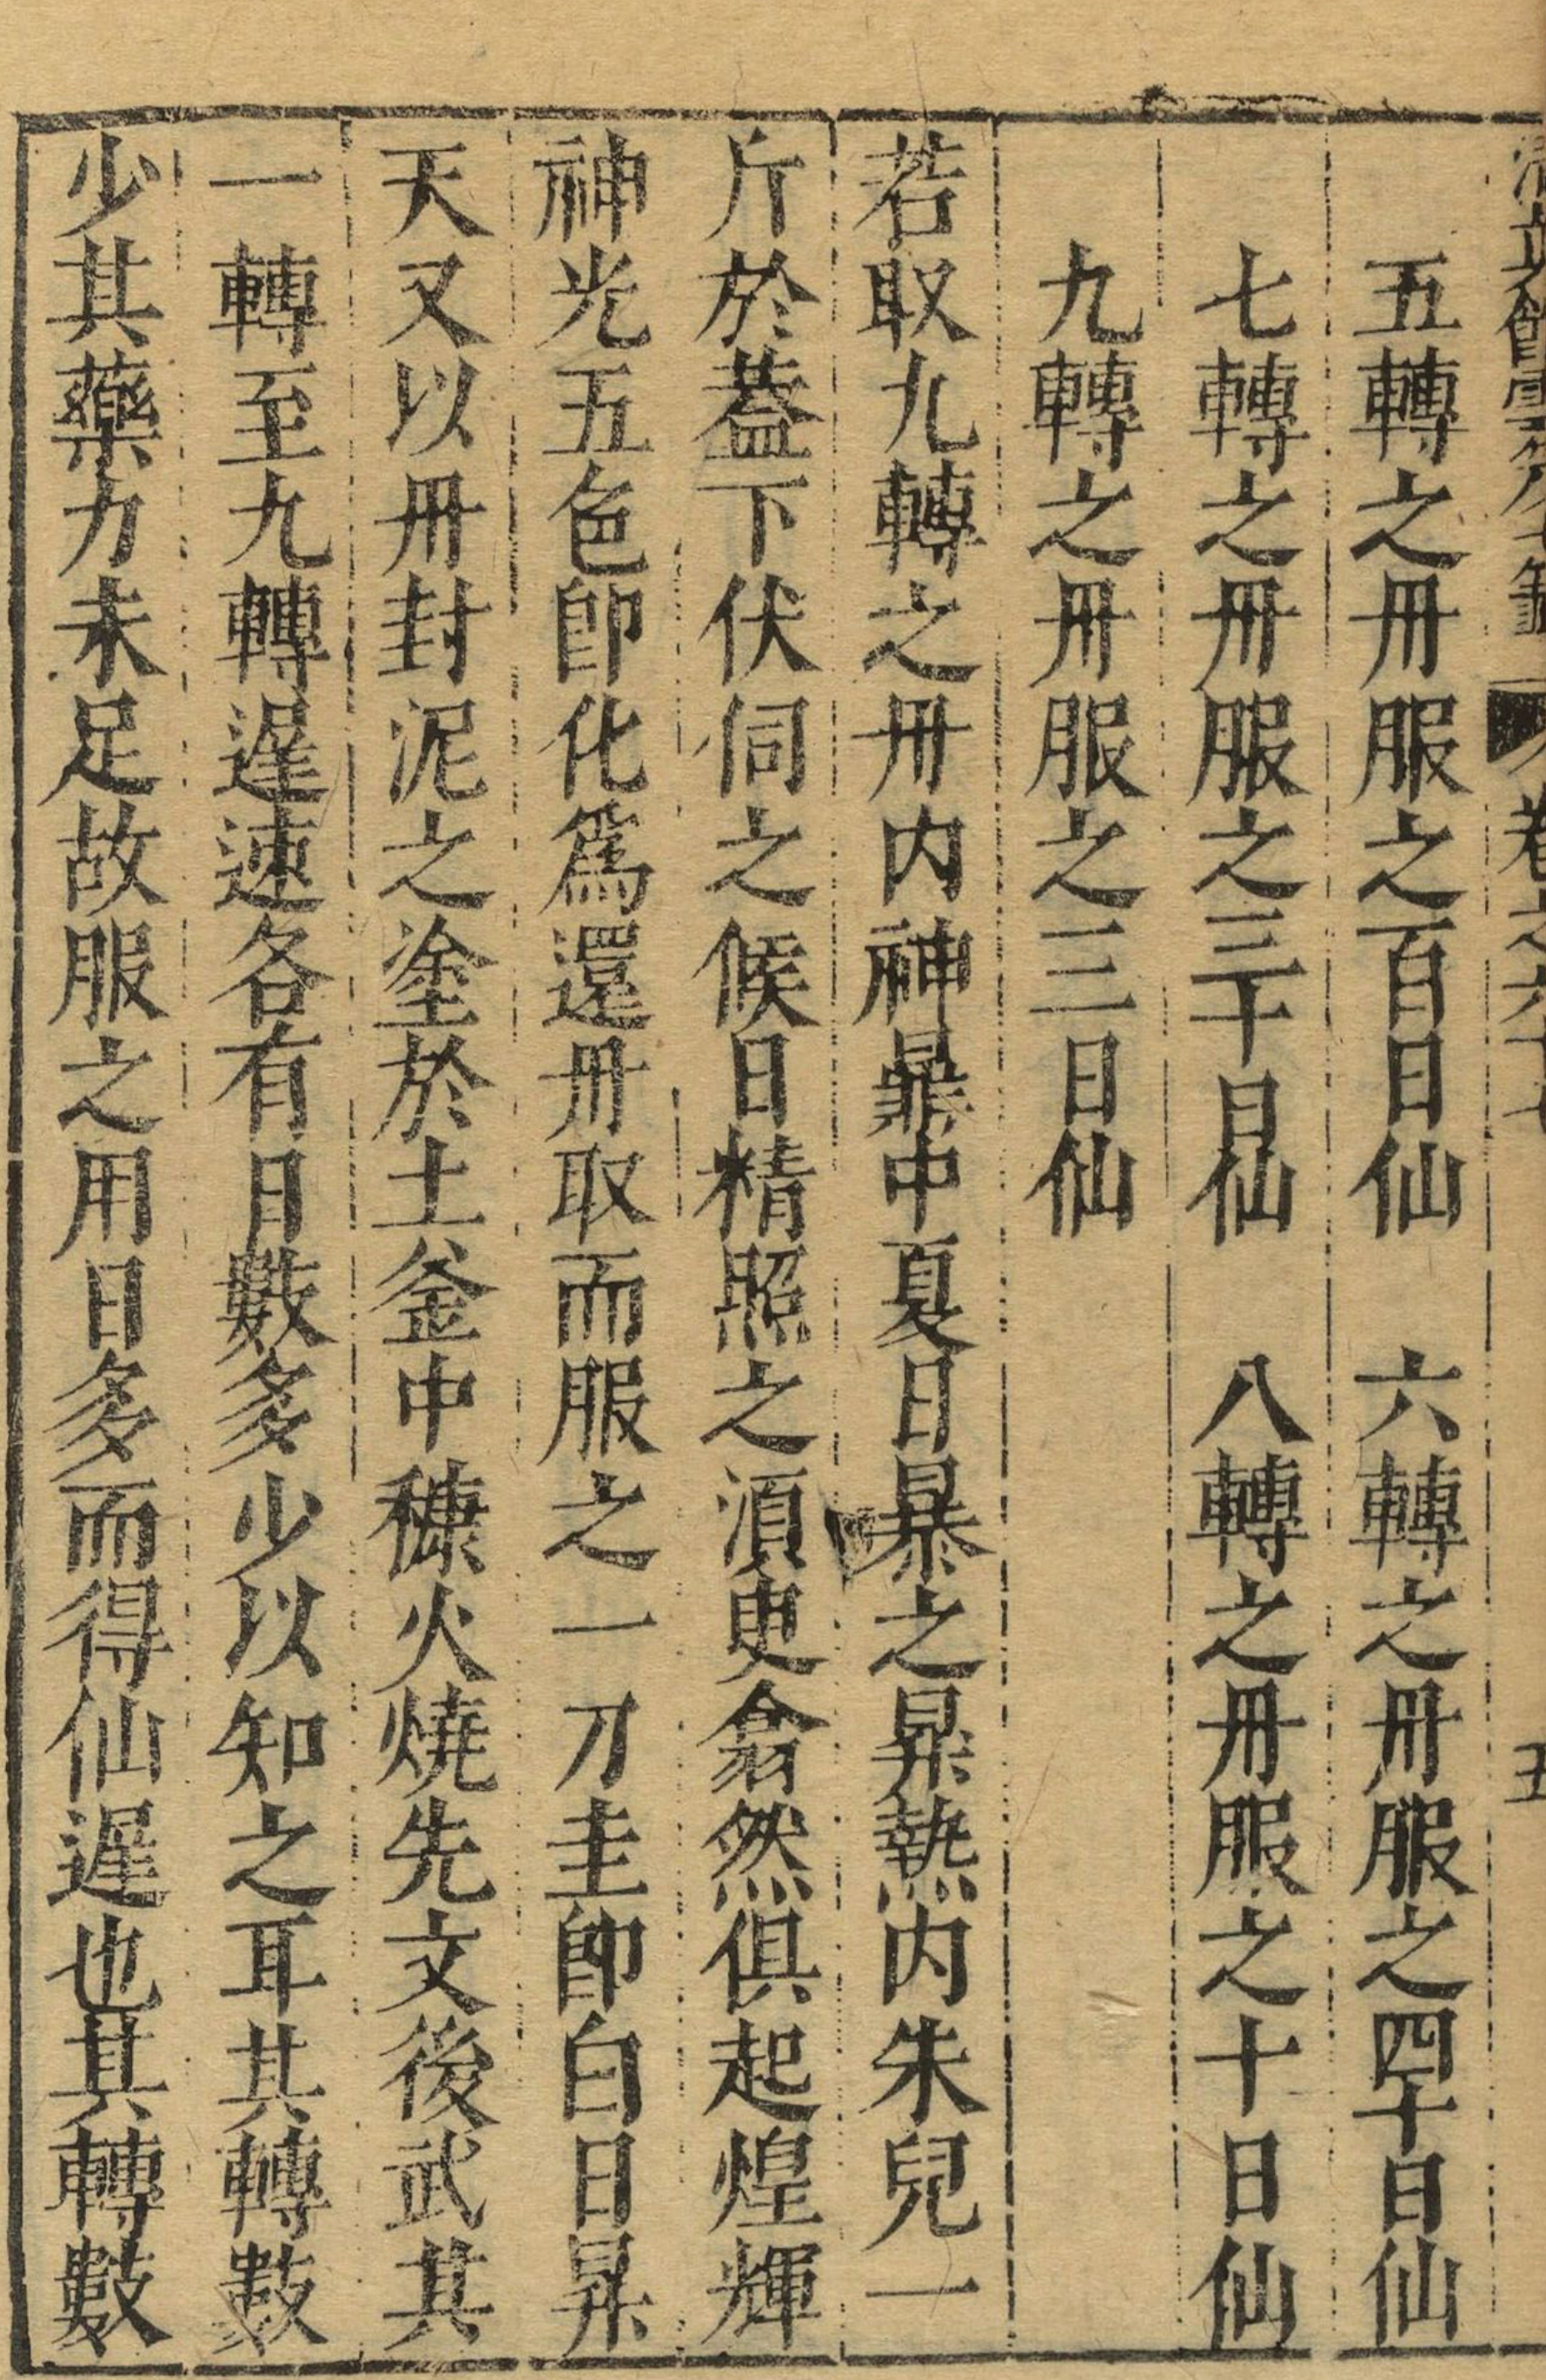 五轉之丹服之百日仙　六轉之丹服之四十日仙
七轉之丹服之三十日仙　八轉之丹服之十日仙
九轉之丹服之三日仙
若取九轉之丹内神鼎中夏日暴之鼎熱内朱兒一
斤於蓋下伏伺之候日精照之須臾翕然俱起煌輝
神光五色卽化爲還丹取而服之一刀圭卽白日昇
天又以丹封泥之塗於土釜中糠火燒先文後武其
一轉至九轉遲速各有日數多少以知之耳其轉數
少其藥力未足故服之用日多而得仙遲也其轉數